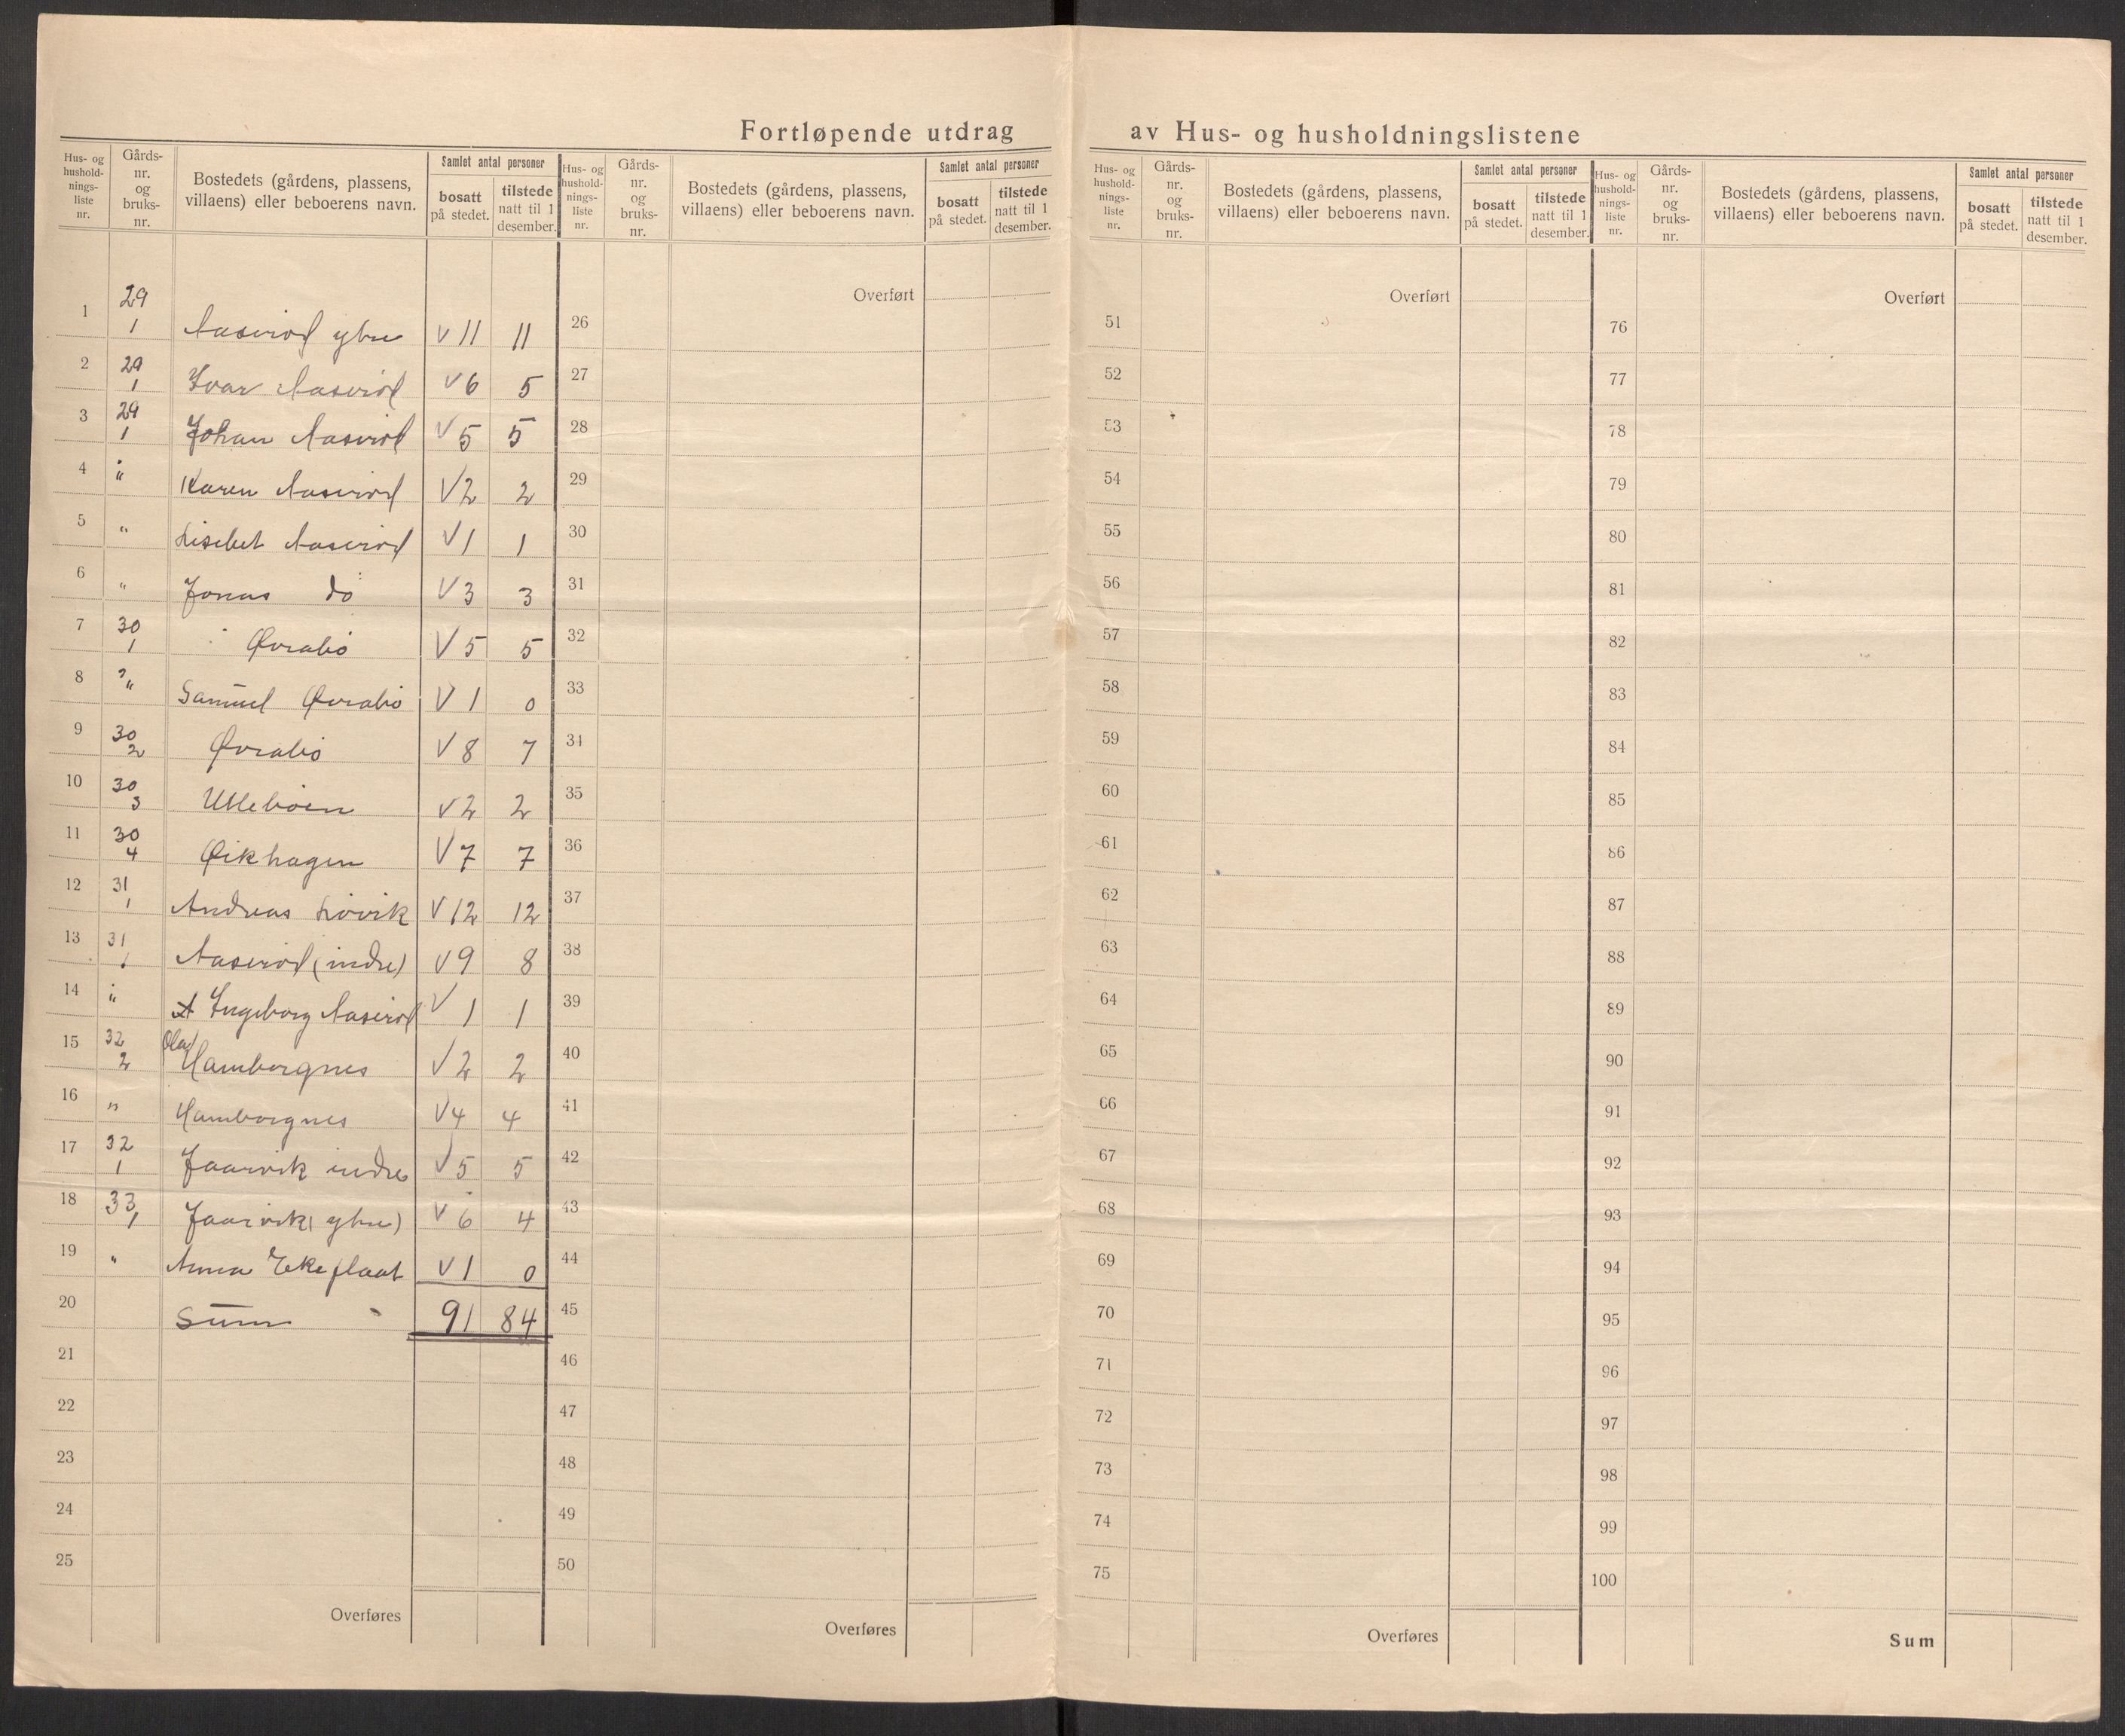 Fortløpende utdrag av Hus- og husholdningslistene
Hus- og hushold- nings- liste nr. | Gårds- nr. og bruks- nr. | Bostedets (gårdens, plassens, villaens) eller beboerens navn. | Samlet antal personer | bosatt på stedet. | tilstede natt til 1 desember.
1 | 29 1 | Aaserød ytre | V 11 | 11
2 | 29 1 | Ivar Aaserød | V 6 | 5
3 | 29 1 | Johan Aaserød | V 5 | 5
4 | " | Karen Aaserød | V 2 | 2
5 | " | Lisebet Aaserød | V 1 | 1
6 | " | Jonas do | V 3 | 3
7 | 30 1 | Øvrabø | V 5 | 5
8 | " | Samuel Øvrabø | V 1 | 0
9 | 30 2 | Øvrabø | V 8 | 7
10 | 30 3 | Ulleböen | V 2 | 2
11 | 30 4 | Øikhagen | V 7 | 7
12 | 31 1 | Andreas Løvik | V 12 | 12
13 | 31 1 | Aaserød (indre) | V 9 | 8
14 | " | Ingeborg Aaserød | V 1 | 1
15 | 32 2 | Olav Hamborgnes | V 2 | 2
16 | " | Hamborgnes | V 4 | 4
17 | 32 1 | Jaarvik indre | V 5 | 5
18 | 33 1 | Jaarvik (ytre) | V 6 | 4
19 | " | Anna Ekeflaat | V 1 | 0
20 | Sum | 91 | 84
21
22
23
24
25
Overføres
Hus- og hushold- nings- liste nr. | Gårds- nr. og bruks- nr. | Bostedets (gårdens, plassens, villaens) eller beboerens navn. | Samlet antal personer | bosatt på stedet. | tilstede natt til 1 desember.
Overført
26
27
28
29
30
31
32
33
34
35
36
37
38
39
40
41
42
43
44
45
46
47
48
49
50
Overføres
Hus- og hushold- nings- liste nr. | Gårds- nr. og bruks- nr. | Bostedets (gårdens, plassens, villaens) eller beboerens navn. | Samlet antal personer | bosatt på stedet. | tilstede natt til 1 desember.
Overført
51
52
53
54
55
56
57
58
59
60
61
62
63
64
65
66
67
68
69
70
71
72
73
74
75
Overføres
Hus- og hushold- nings- liste nr. | Gårds- nr. og bruks- nr. | Bostedets (gårdens, plassens, villaens) eller beboerens navn. | Samlet antal personer | bosatt på stedet. | tilstede natt til 1 desember.
Overført
76
77
78
79
80
81
82
83
84
85
86
87
88
89
90
91
92
93
94
95
96
97
98
99
100
Sum